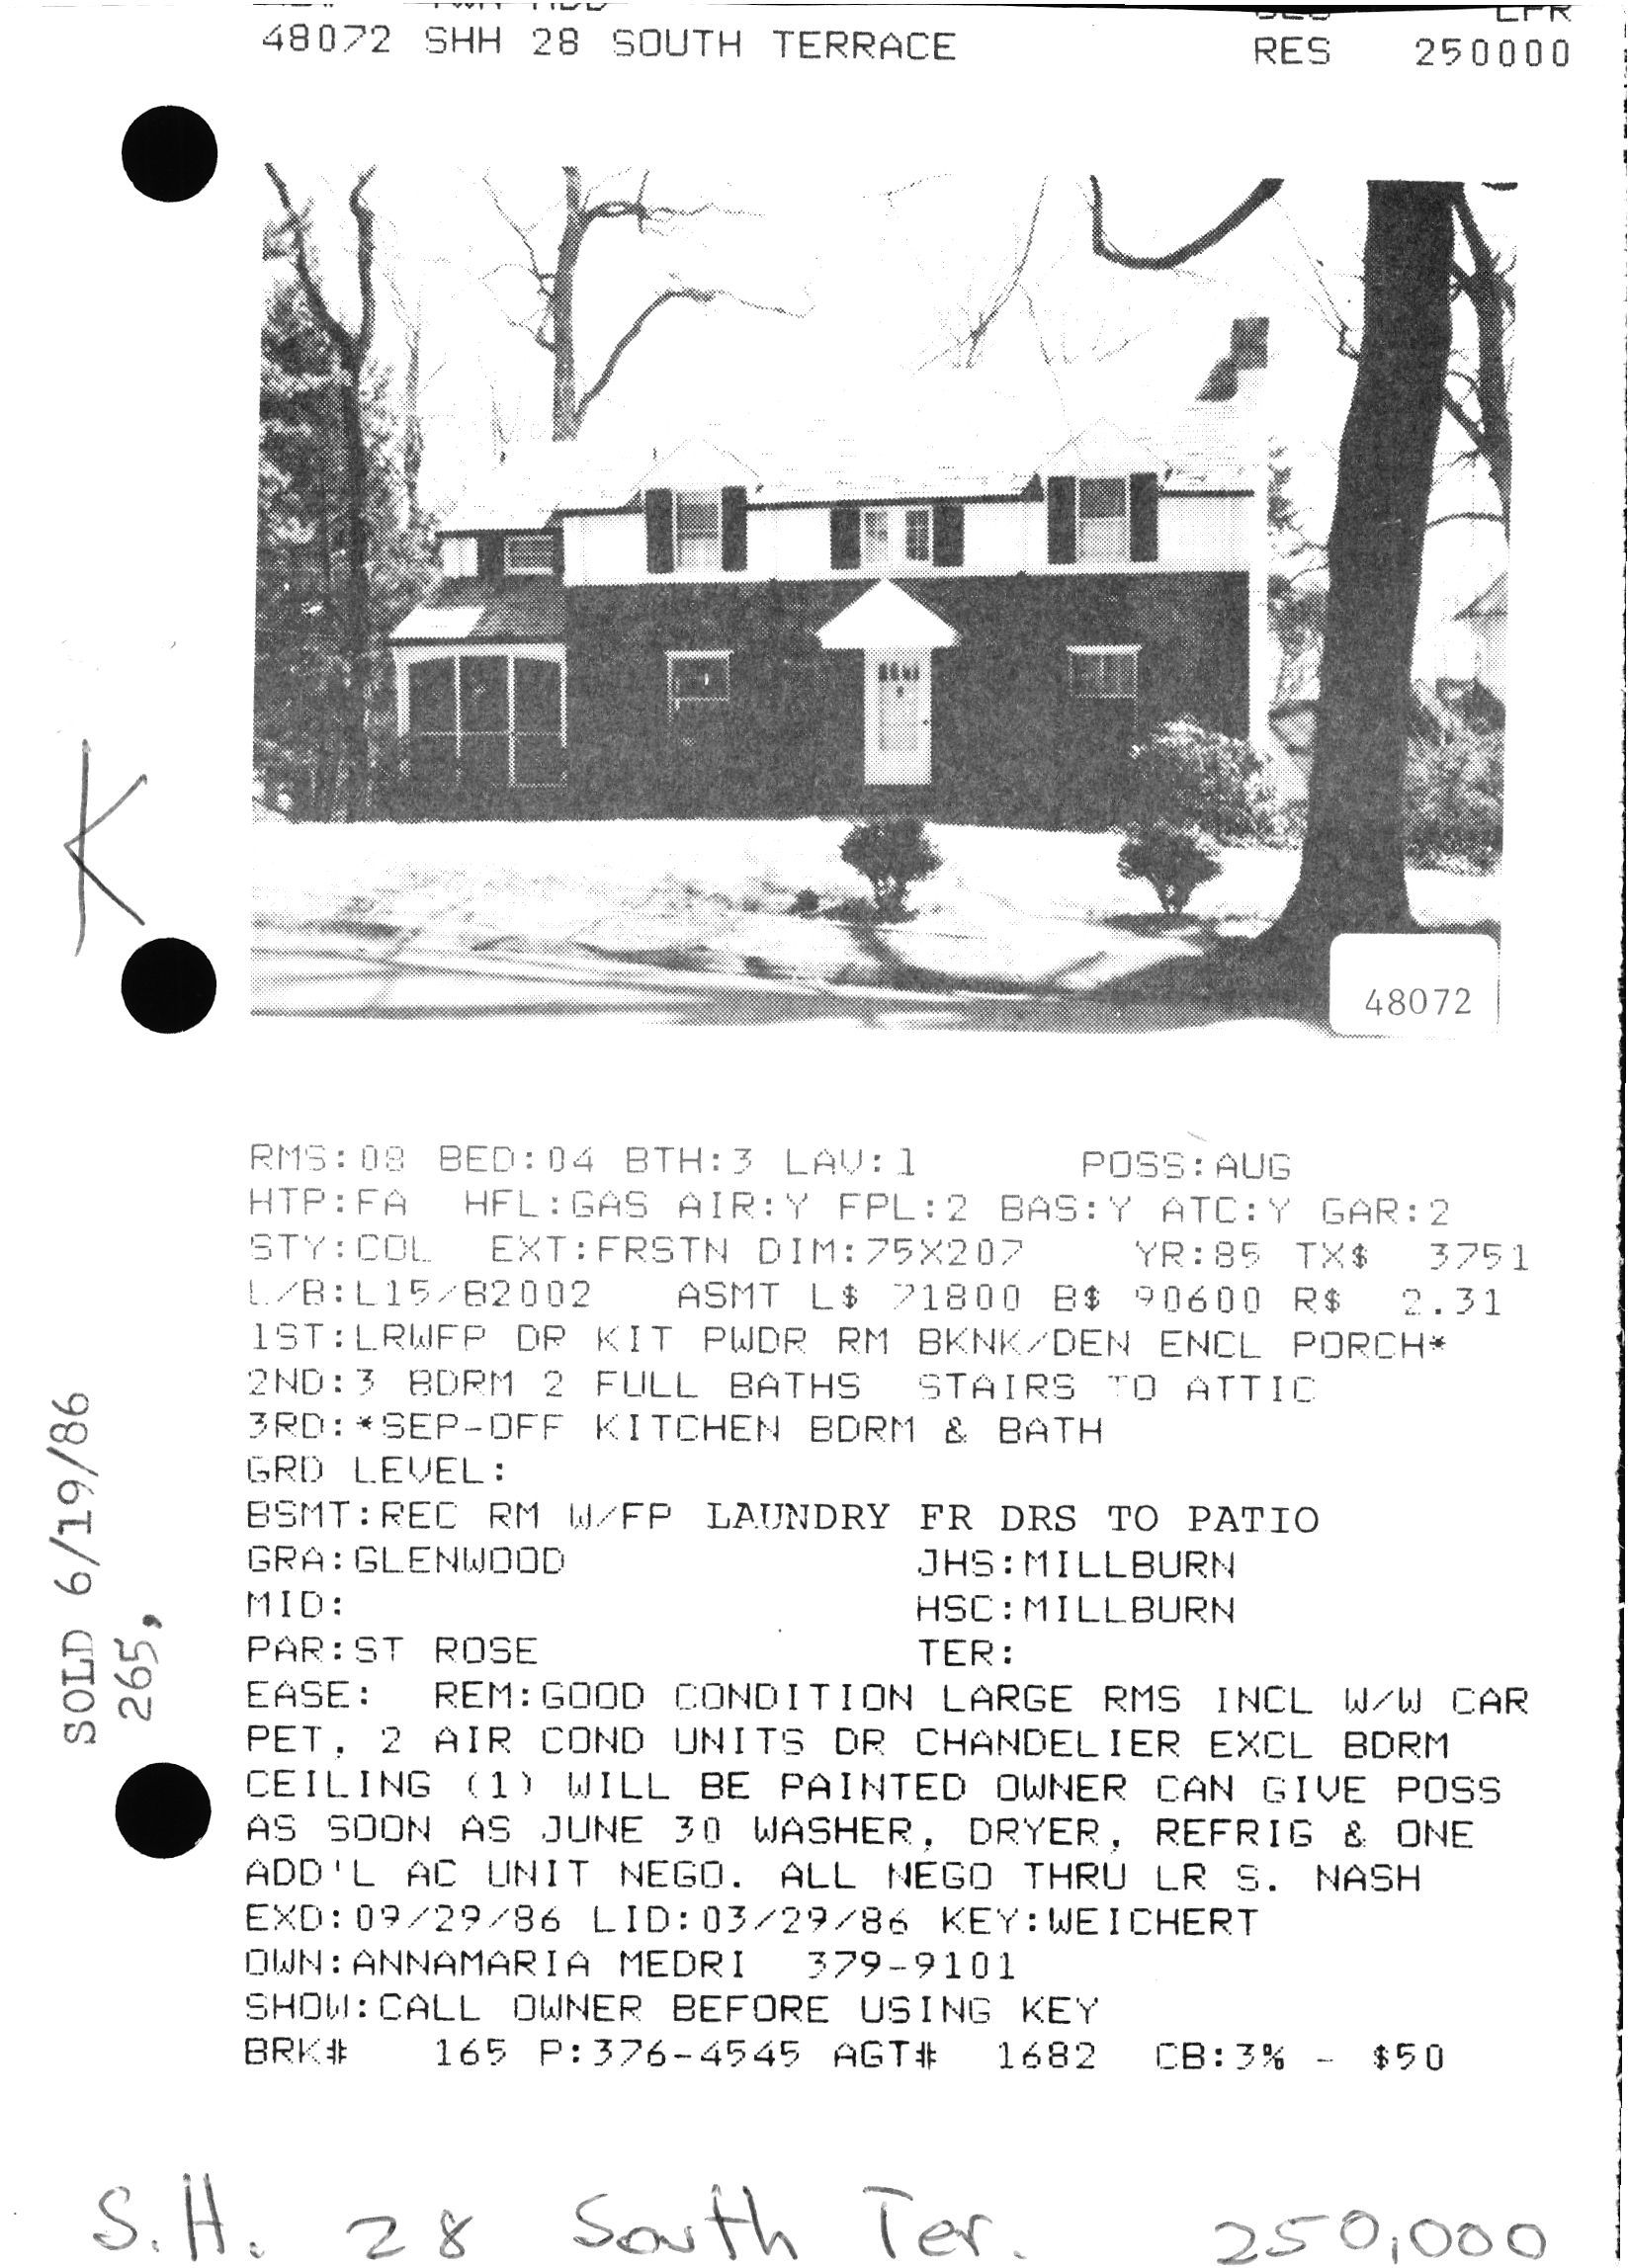 48072 SHH 28 SOUTH TERRACE RES 250000
48072
RMS:08 BED:04 BTH:3 LAV:1 POSS:AUG
HTP:FA HFL:GAS AIR:Y FPL:2 BAS:Y ATC:Y GAR:2
STY:COL EXT:FRSTN DIM:75X207 YR:85 TX$ 3751
L/B:L15/B2002 ASMT L$ 71800 B$ 90600 R$ 2.31
1ST:LRWFP DR KIT PWDR RM BKNK/DEN ENCL PORCH*
2ND:3 BDRM 2 FULL BATHS STAIRS TO ATTIC
3RD:*SEP-OFF KITCHEN BDRM & BATH
GRD LEVEL:
BSMT:REC RM W/FP LAUNDRY FR DRS TO PATIO
GRA:GLENWOOD JHS:MILLBURN
MID: HSC:MILLBURN
PAR:ST ROSE TER:
EASE: REM:GOOD CONDITION LARGE RMS INCL W/W CAR
PET, 2 AIR COND UNITS DR CHANDELIER EXCL BDRM
CEILING (1) WILL BE PAINTED OWNER CAN GIVE POSS
AS SOON AS JUNE 30 WASHER, DRYER, REFRIG & ONE
ADD'L AC UNIT NEGO. ALL NEGO THRU LR S. NASH
EXD:09/29/86 LID:03/29/86 KEY:WEICHERT
OWN:ANNAMARIA MEDRI 379-9101
SHOW:CALL OWNER BEFORE USING KEY
BRK# 165 P:376-4545 AGT# 1682 CB:3% - $50
SOLD 6/19/86
265,
K
S.H. 28 South Ter. 250,000